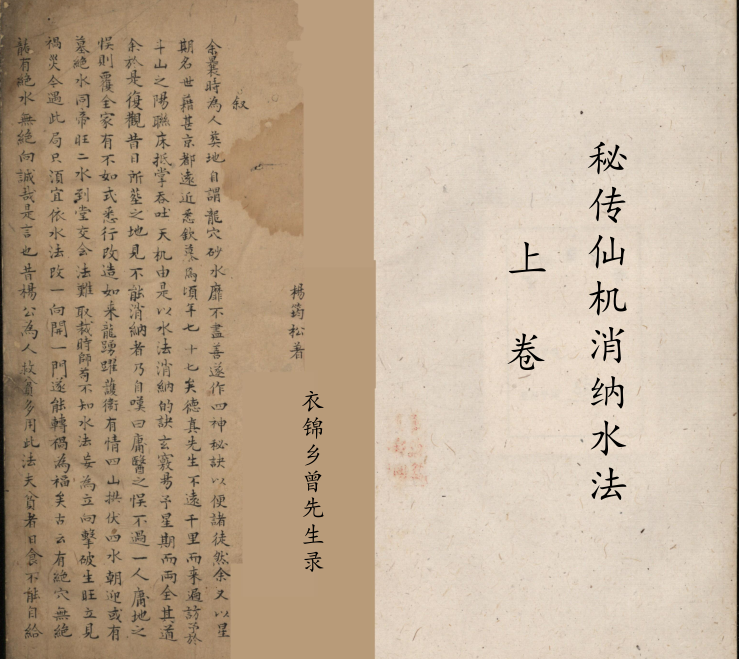 秘传仙机消纳水法
上卷
衣锦乡曾先生录
楊筠松著
叙
余曩時為人葵地自謂龍穴砂水靡不盡善遂作四神秘訣以便諸徒然余又以星
期名世藉甚京都遠近悉欽慕焉頃年七十七矣德真先生不遠千里而來遍訪於
斗山之陽聯床抵掌吞吐天机由是以水法消納的訣玄竅授予星期而兩全其道
余於是復觀昔日所塟之地見不能消納者乃自嘆曰庸醫之悮不過一人庸地之
悮則覆全家有不如式悉行改造如來龍踴躍護衛有情四山拱伏四水朝迎或有
墓絕水同帝旺二水到堂交会法難取裁時師若不知水法妄為立向擊破生旺立見
禍災今遇此局只須宜依水法改一向開一門遂能轉禍為福矣古云有絕穴無絕
龍有絕水無絕向誠哉是言也昔楊公為人救貧多用此法夫貧者日食不能自給